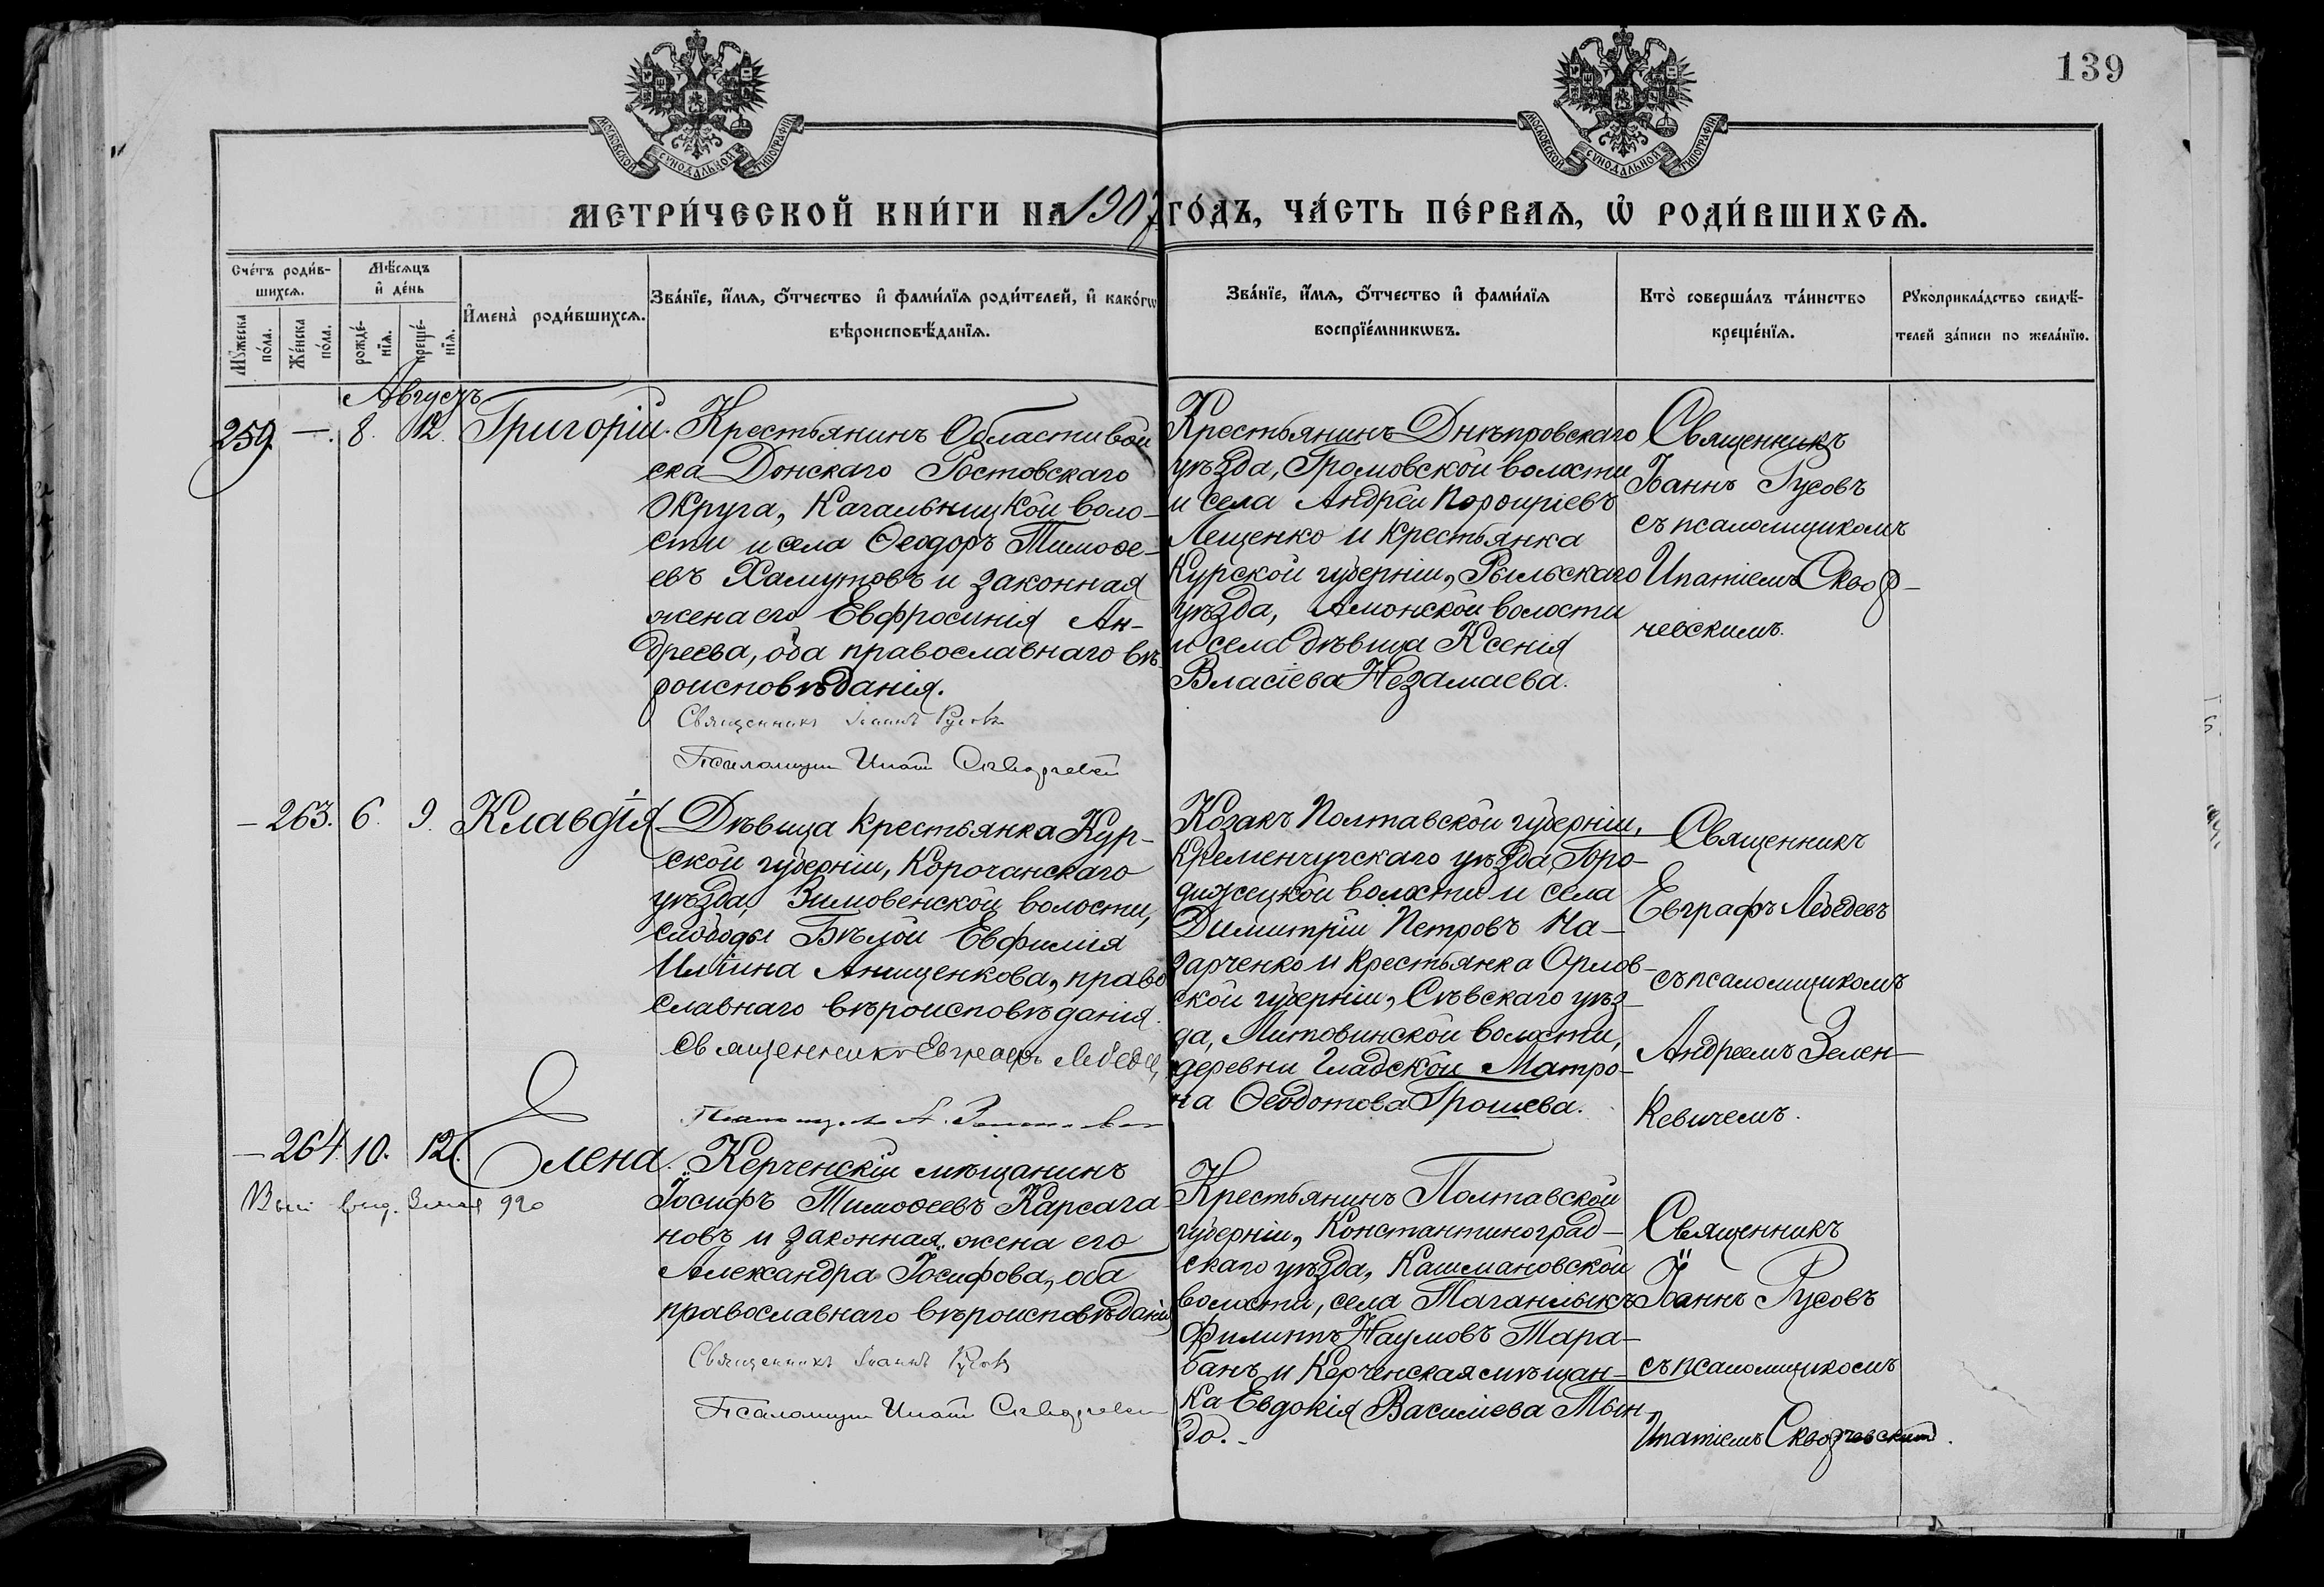 139
МОСКОВСКОЙ СѴНОДАЛЬНОЙ ТИПОГРАФІИ
МОСКОВСКОЙ СѴНОДАЛЬНОЙ ТИПОГРАФІИ
МЕТРИ́ЧЕСКОЙ КНИ́ГИ НА 1907 ГО́ДЪ, ЧА́СТЬ ПЕ́РВАѦ, Ѡ҆ РОДИ́ВШИХСѦ.
Сче́тъ роди́в-
шихсѧ.
Мꙋ́жеска
по́ла.
Же́нска
по́ла.
Мѣ́сѧцъ
и҆ де́нь
рожде́-
нїѧ.
креще́-
нїѧ.
И҆мена̀ роди́вшихсѧ.
Зва́нїе, и҆́мѧ, ѻ҆́тчество и҆ фами́лїѧ роди́телей, и҆ како́гѡ
вѣроисповѣ́данїѧ.
Зва́нїе, и҆́мѧ, ѻ҆́тчество и҆ фами́лїѧ
воспрїе́мникѡвъ.
Кто̀ соверша́лъ та́инство
креще́нїѧ.
Рꙋкоприкла́дство свидѣ́-
телей за́писи по жела́нїю.
Августъ
259. —. 8. 12. Григорій.
Крестьянинъ Области вой
ска Донскаго Ростовскаго
Округа, Кагальницкой воло-
сти и села Ѳеодоръ Тимоѳе-
евъ Хамутовъ и законная
жена его Евфросинія Ан-
дреева, оба православнаго вѣ-
роисповѣданія.
Священникъ Іоаннъ Русовъ
Псаломщик Ипатій Скворчевскій
Крестьянинъ Днѣпровскаго
уѣзда, Громовской волости
и села Андрей Порфиріевъ
Лещенко и крестьянка
Курской губерніи, Рыльскаго
уѣзда, Амонской волости
и села дѣвица Ксенія
Власіева Незамаева.
Священникъ
Іоаннъ Русовъ
съ псаломщикомъ
Ипатіемъ Сквор-
чевскимъ.
— 263. 6. 9. Клавдія
Дѣвица крестьянка Кур-
ской губерніи, Корочанскаго
уѣзда, Зимовенской волости,
слободы Бѣлой Евфимія
Иліина Анищенкова, право
славнаго вѣроисповѣданія.
Священникъ Евграфъ Лебедев
Козакъ Полтавской губерніи,
Кременчугскаго уѣзда, Горо-
дижсцкой волости и села
Димитрій Петровъ На-
зарченко и крестьянка Орлов-
ской губерніи, Сѣвскаго уѣз-
да, Литовинской волости,
деревни Гладской Матро-
на Ѳеодотова Грошева.
Священникъ
Евграфъ Лебедевъ
съ псаломщикомъ
Андреемъ Зелен-
кевичемъ.
— 264. 10. 12. Елена.
Керченскій мѣщанинъ
Іосифъ Тимоѳеевъ Карсага-
новъ и законная жена его
Александра Іосифова, оба
православнаго вѣроисповѣданія
Священникъ Іоаннъ Русовъ
Псаломщик Ипатій Скворчевскій
Крестьянинъ Полтавской
губерніи, Константиноград-
скаго уѣзда, Кашмановской
волости, села Таганлыкъ
Филиппъ Наумовъ Тара-
банъ и Керченская мѣщан-
ка Евдокія Василіева Мын-
до.-
Священникъ
Іоаннъ Русовъ
съ псаломщикомъ
Ипатіемъ Скворчевским.